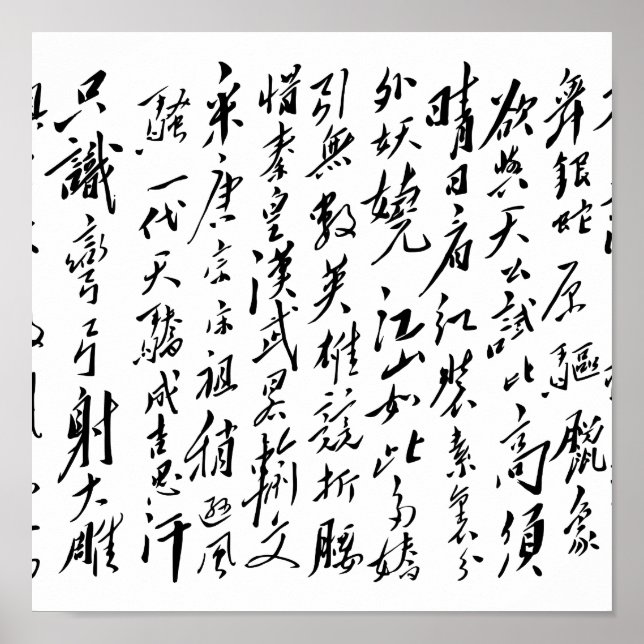 舞銀蛇原驅臘象
欲與天公試比高須
晴日看紅裝素裹分
外妖嬈江山如此多嬌
引無數英雄競折腰
惜秦皇漢武畧輸文
采唐宗宋祖稍遜風
騷一代天驕成吉思汗
只識彎弓射大雕